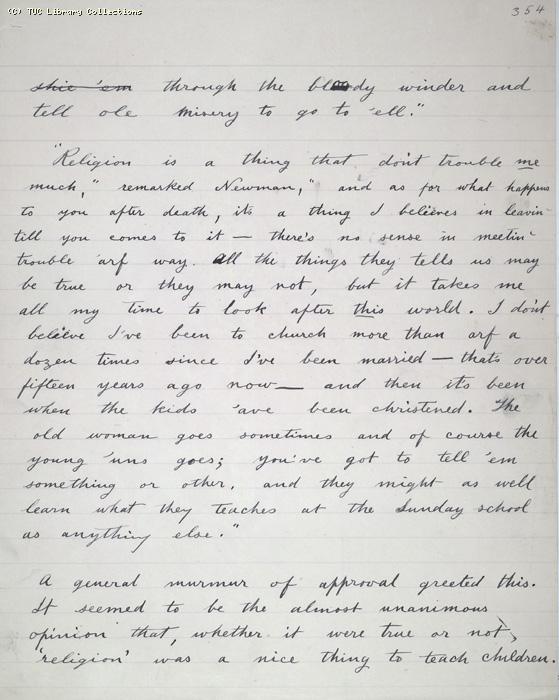 (C) TUC Library Collections
354
shie 'em through the bloody winder and
tell ole misery to go to 'ell."
"Religion is a thing that don't trouble me
much," remarked Newman, "and as for what happens
to you after death, it's a thing I believes in leavin'
till you comes to it — there's no sense in meetin'
trouble 'arf way. All the things they tells us may
be true or they may not, but it takes me
all my time to look after this world. I don't
believe I've been to church more than arf a
dozen times since I've been married — thats over
fifteen years ago now — and then it's been
when the kids 'ave been christened. The
old woman goes sometimes and of course the
young 'uns goes; you've got to tell 'em
something or other, and they might as well
learn what they teaches at the Sunday school
as anything else."
A general murmur of approval greeted this.
It seemed to be the almost unanimous
opinion that, whether it were true or not,
'religion' was a nice thing to teach children.